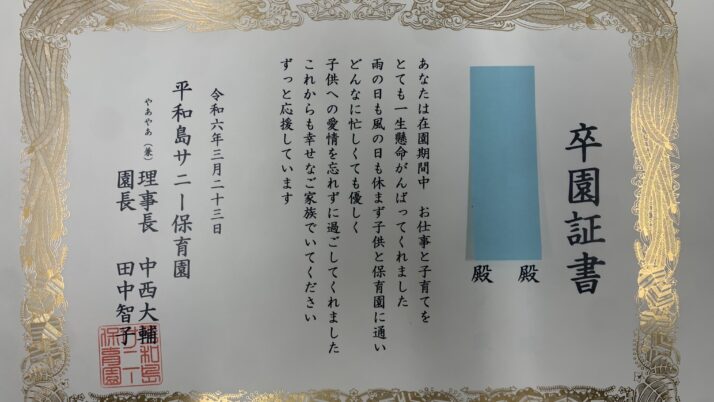 卒園証書
殿
殿
あなたは在園期間中　お仕事と子育てを
とても一生懸命がんばってくれました
雨の日も風の日も休まず子供と保育園に通い
どんなに忙しくても優しく
子供への愛情を忘れずに過ごしてくれました
これからも幸せなご家族でいてください
ずっと応援しています
令和六年三月二十三日
平和島サニー保育園
やあやあ（兼）理事長　中西大輔
園長　田中智子
平和島
サニー
保育園